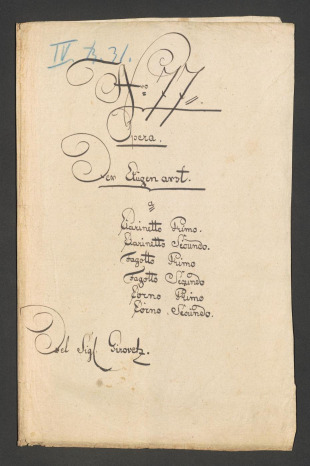 IV B. 31.
No: 77.
Opera.
Der Augen arzt.
à
Clarinetto Primo.
Clarinetto Secundo.
Fagotto Primo
Fagotto Secundo
Corno Primo
Corno Secundo.
Del Sigl Girovetz.